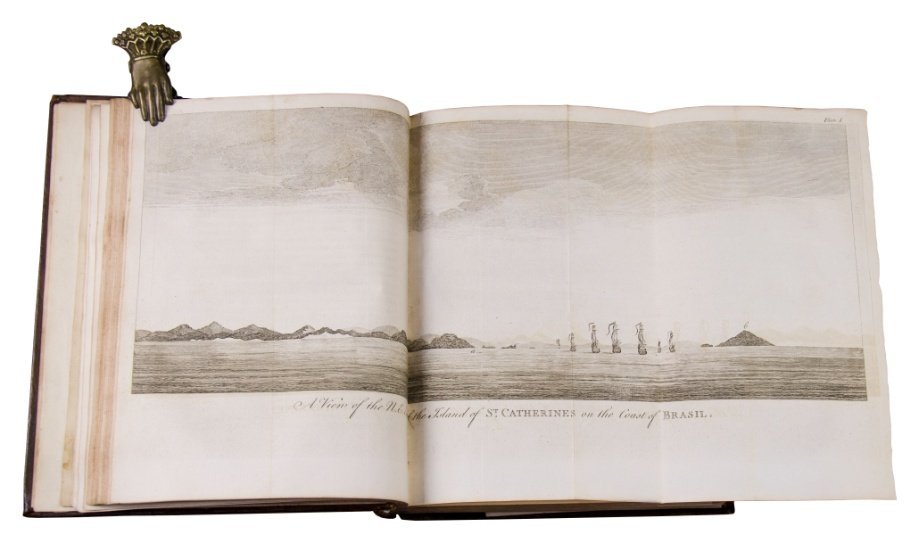 Plate I.
A View of the N.E. the Island of Sᵀ CATHERINES on the Coast of BRASIL.